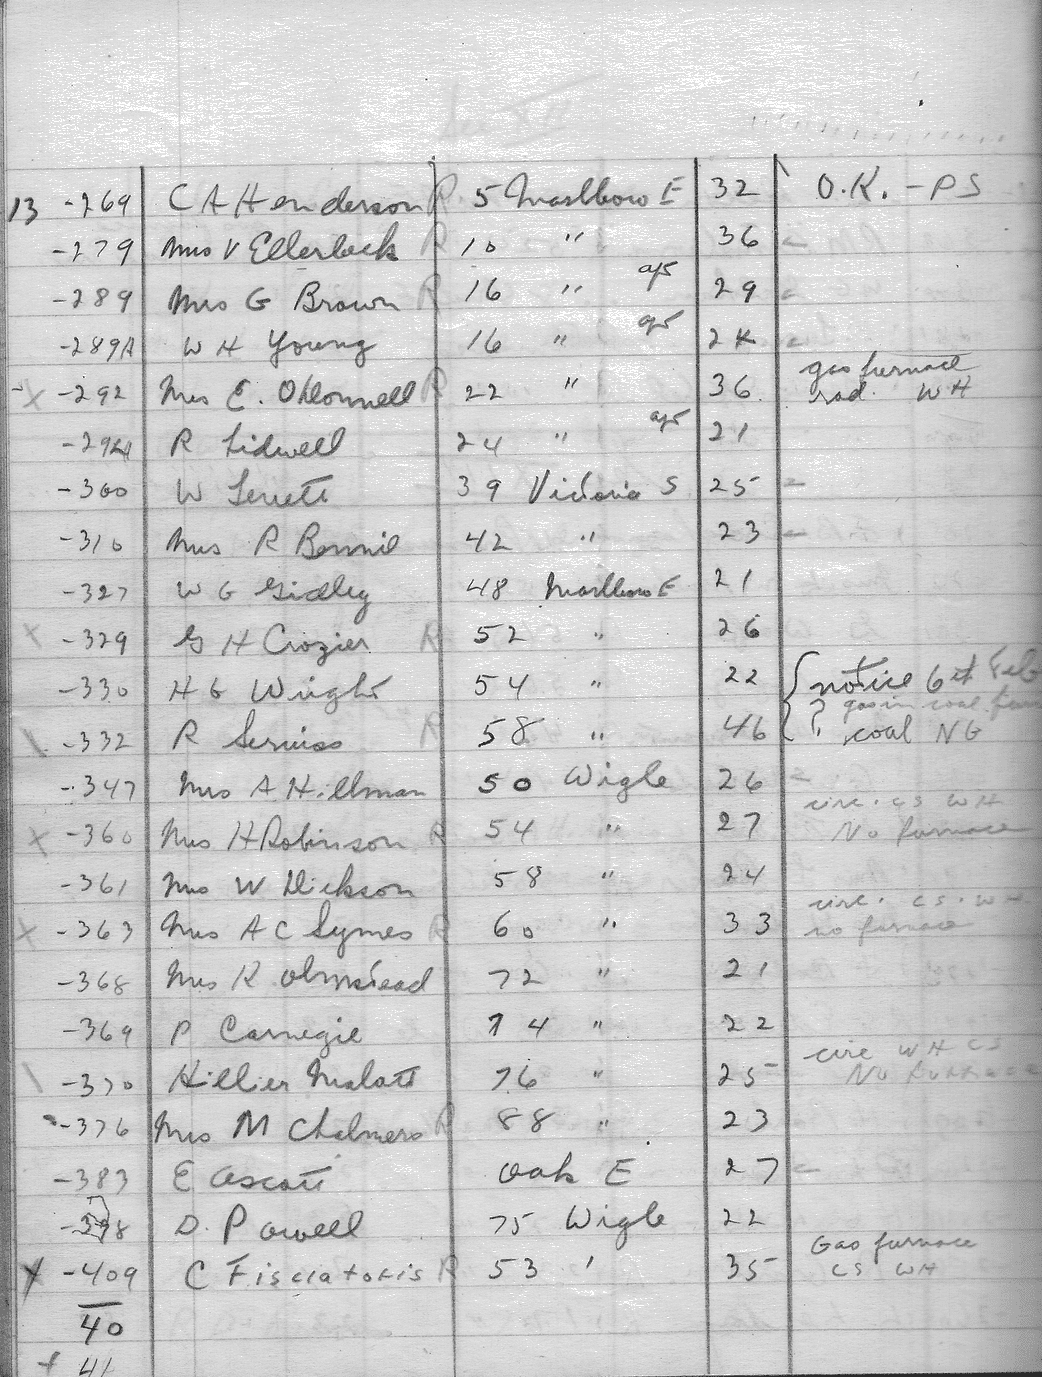 13 -269 C A Henderson R 5 Marlboro E 32 O.K. - PS
-279 Mrs V Ellerbeck R 10 " 36
-289 Mrs G Brown R 16 " apt 29
-289A W H Young 16 " apt 24
gas furnace
X -292 Mrs E. O'Donnell R 22 " 36 rad. WH
-294A R Lidwell 24 " apt 21
-300 W 39 Victoria S 25
-310 Mrs R 42 " 23
-327 W G Gidley 48 Marlboro E 21
X -329 G H Crozier R 52 " 26
-330 H G Wright 54 " 22 notice 6 Feb
? gas in coal furn
\ -332 R Serviss R 58 " 46 coal NG
-347 Mrs A Hillman 50 Wigle 26
circ. CS WH
X -360 Mrs H Robinson R 54 " 27 No furnace
-361 Mrs W Dickson 58 " 24
circ. CS. WH
X -363 Mrs A C Symes R 60 " 33 no furnace
-368 Mrs R Olmstead 72 " 21
-369 P Carnegie 74 " 22
circ WH CS
\ -370 Hillier Malott 76 " 25 No furnace
-376 Mrs M Chalmers R 88 " 23
-383 E Ascott Oak E 27
-398 D. Powell 75 Wigle 22
Gas furnace
X -409 C Fisciatoris R 53 ' 35 CS WH
40
+ 41